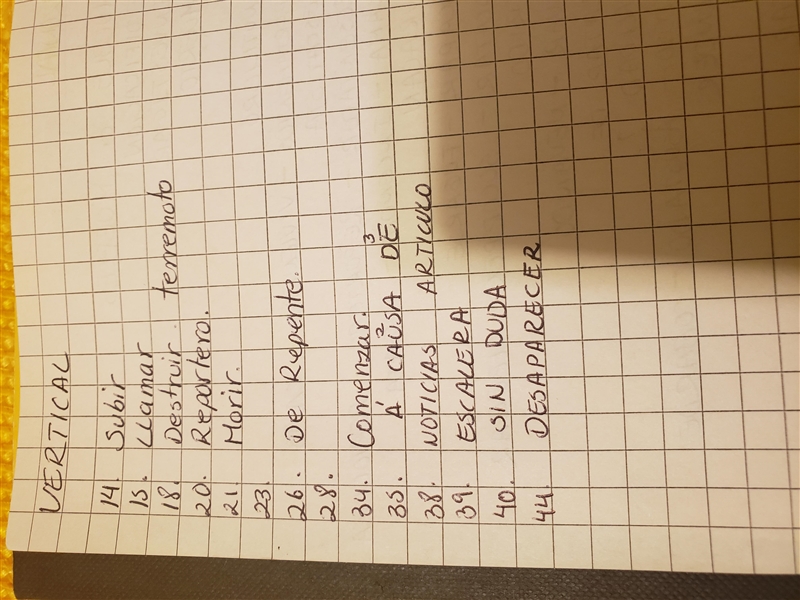 VERTICAL
14. Subir
15. Llamar
18. Destruir. terremoto
20. Reportero.
21. Morir.
23.
26. De Repente.
28.
34. Comenzar.
35. A CAUSA 2 DE 3
38. NOTICIAS ARTICULO
39. ESCALERA
40. SIN DUDA
44. DESAPARECER